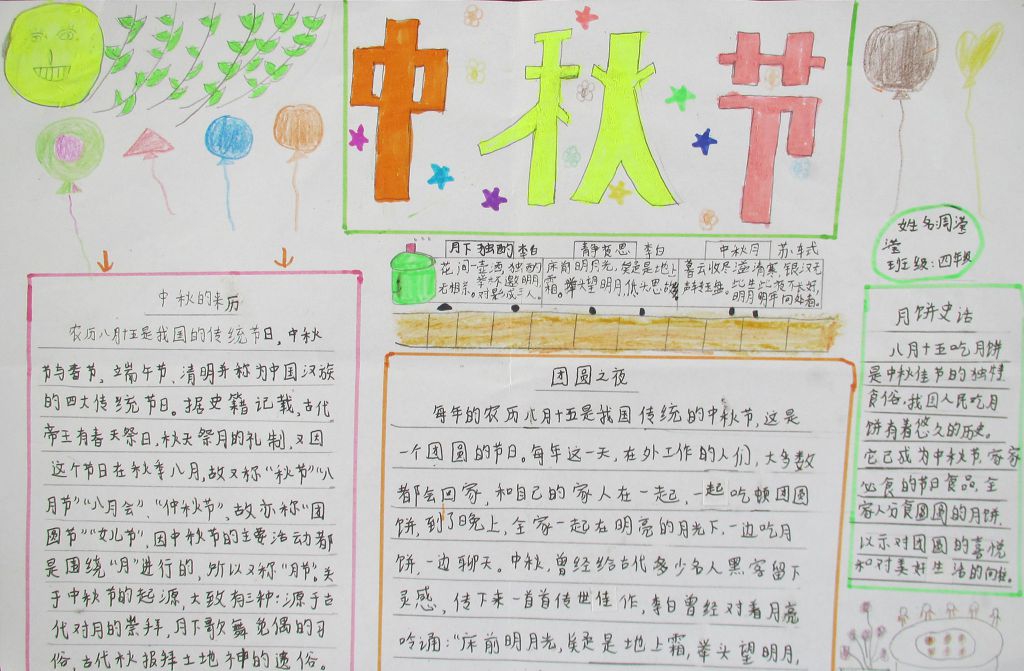 中秋节
姓名:周滢
滢
班级:四年级
月下独酌 李白
花间一壶酒,独酌
无相亲。举杯邀明月,
对影成三人。
静夜思 李白
床前明月光,疑是地上
霜。举头望明月,低头思故
中秋月 苏轼
暮云收尽溢清寒,银汉无
声转玉盘。此生此夜不长好,
明月明年何处看。
中秋的来历
农历八月十五是我国的传统节日,中秋
节与春节、端午节、清明并称为中国汉族
的四大传统节日。据史籍记载,古代
帝王有春天祭日,秋天祭月的礼制,又因
这个节日在秋季八月,故又称“秋节”“八
月节”“八月会”、“仲秋节”,故亦称“团
圆节”“女儿节”,因中秋节的主要活动都
是围绕“月”进行的,所以又称“月节”。关
于中秋节的起源,大致有三种:源于古
代对月的崇拜,月下歌舞觅偶的习
俗,古代秋报拜土地神的遗俗。
团圆之夜
每年的农历八月十五是我国传统的中秋节,这是
一个团圆的节日。每年这一天,在外工作的人们,大多数
都会回家,和自己的家人在一起,一起吃顿团圆
饼,到了晚上,全家一起在明亮的月光下,一边吃月
饼,一边聊天。中秋,曾经给古代多少名人墨客留下
灵感,传下来一首首传世佳作,李白曾经对着月亮
吟诵:“床前明月光,疑是地上霜,举头望明月,
月饼史话
八月十五吃月饼
是中秋佳节的独特
食俗,我国人民吃月
饼有着悠久的历史。
它已成为中秋节,家家
必食的节日食品,全
家人分食圆圆的月饼,
以示对团圆的喜悦
和对美好生活的向往。